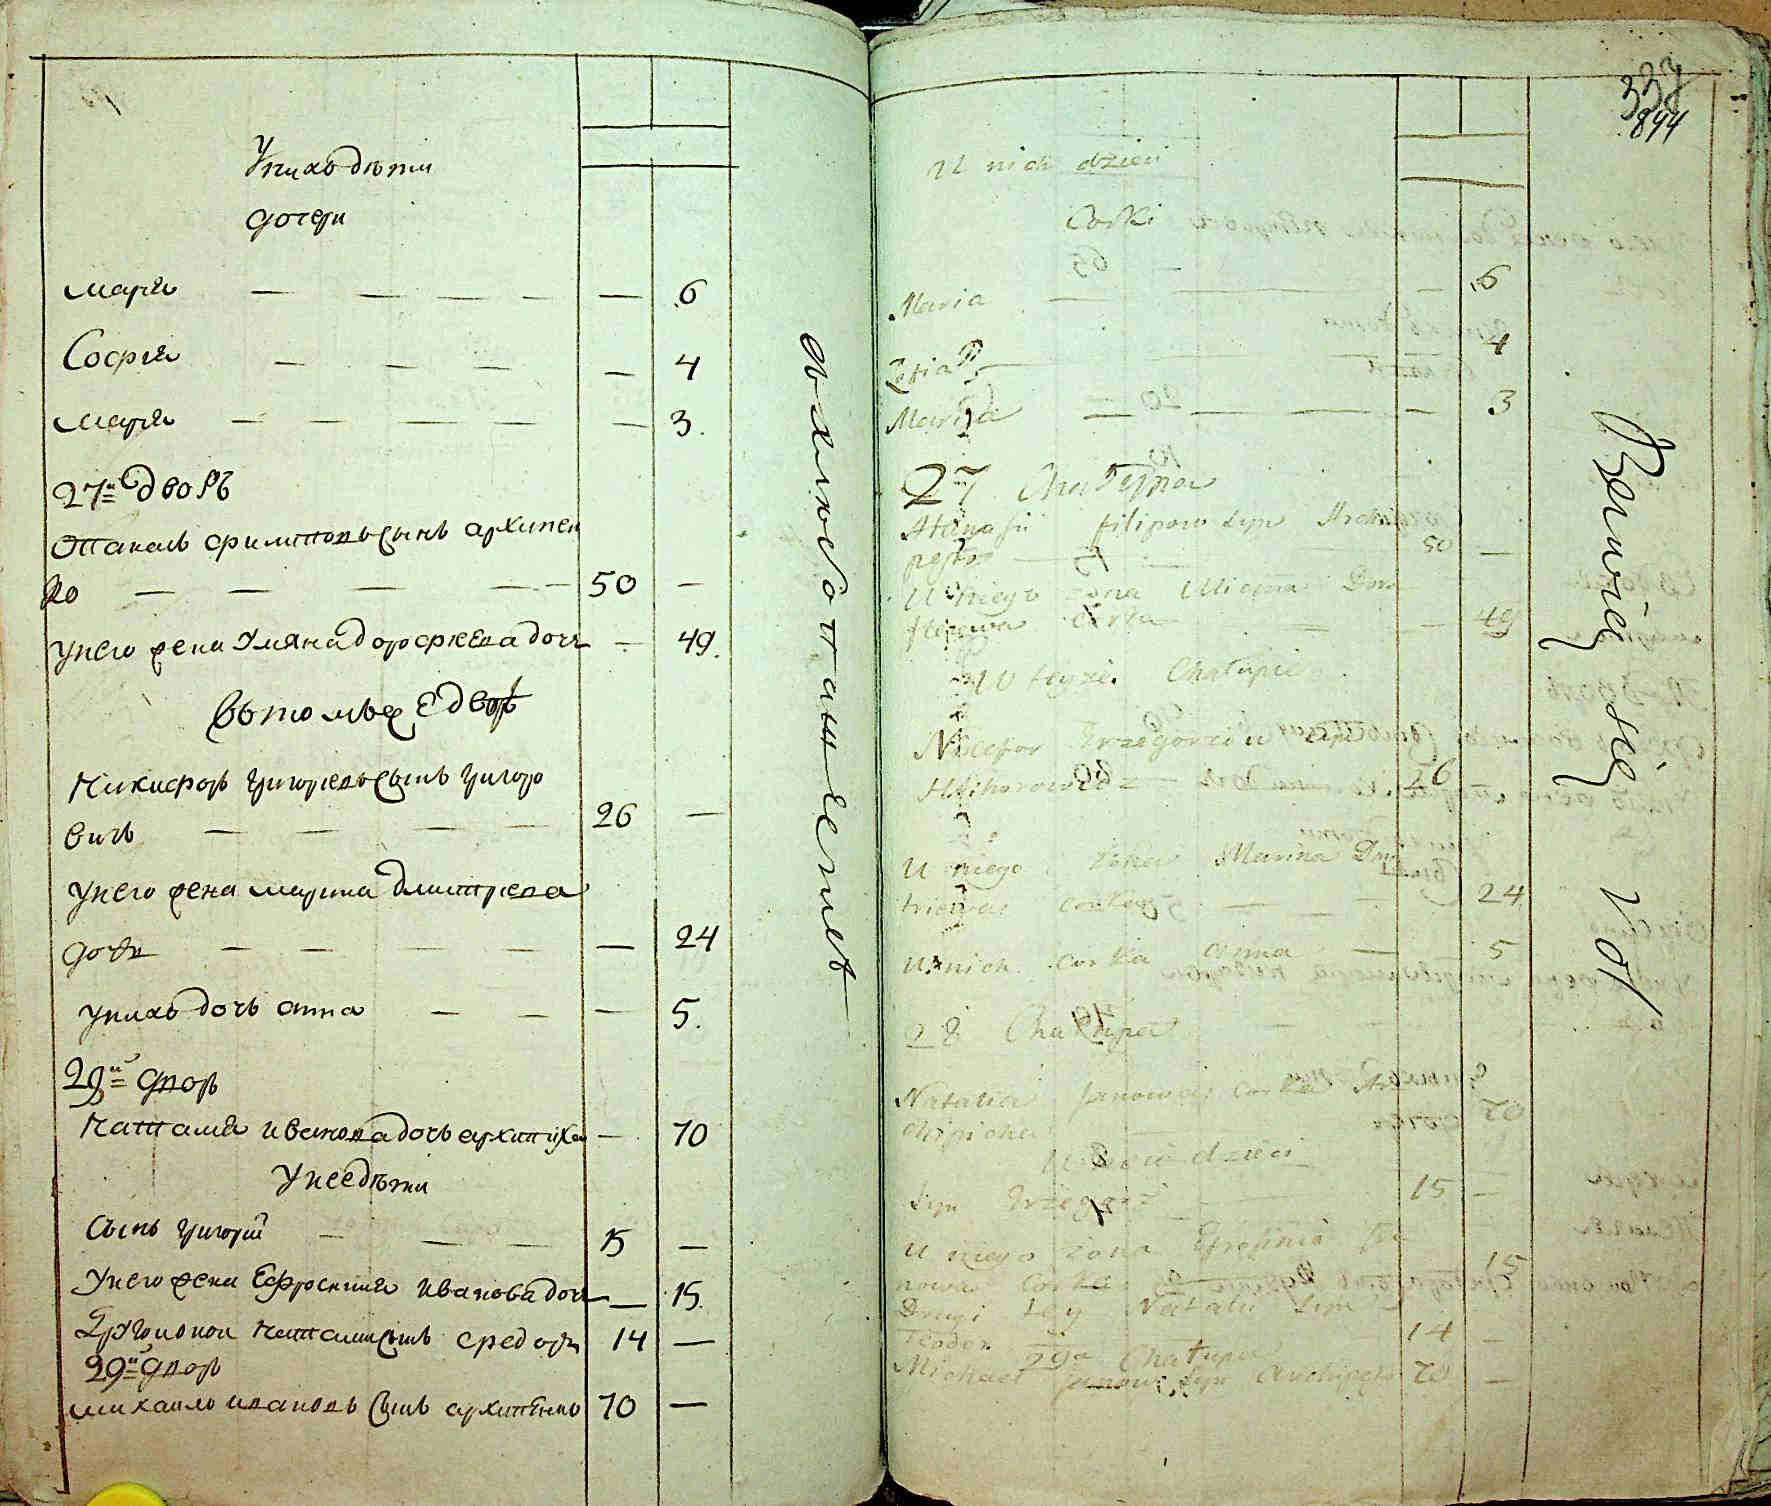 У нихъ дѣти
дочери
Марія — — — — — 6
Софія — — — — 4
Марія — — — — — 3.
27й дворъ
Отанасъ Филиповъ сынъ Архипен
ко — — — — 50 —
У него жена Уляна Дорофеева дочь — 49.
Въ томъ же дворѣ
Никифоръ Григорьевъ сынъ Григоро
вичъ — — — — 26 —
У него жена Марина Дмитрѣева
дочь — — — — — 24
У нихъ дочь Анна — — — 5.
28й дворъ
Наталія Иванова дочь Архипиха — 70
У нее дѣти
Сынъ Григорій — — — 15 —
У него жена Ефросинія Иванова дочь — 15.
Другой оной Наталіи сынъ Федоръ 14 —
29й дворъ
Михайло Ивановъ сынъ Архипенко 70 —
337
844
U nich dzieci
Corki
Maria — — — 6
Zofia — 4
Marya — — — — 3
27 Chałupa
Atanasii filipow syn Archi
50 —
U niego zona Uliana Do
corka — — 49
W teyze Chałupie
Nicefor Grzegorzow syn
Hrihorowicz — 26 —
U niego żona Marina Dmi
triewa corka — — 24
U nich corka Anna — 5
28 Chałupa
Natalia Janowa corka Ar
chipicha 70
U niey dzieci
Syn Grzegorz — 15 —
U niego żona Efrosinia Ja
nowa corka 15
Drugi tey Natalii syn
Teodor 14 —
29a Chałupa
Michael Janow syn Archipenko 70 —
Rzewoici się Vol